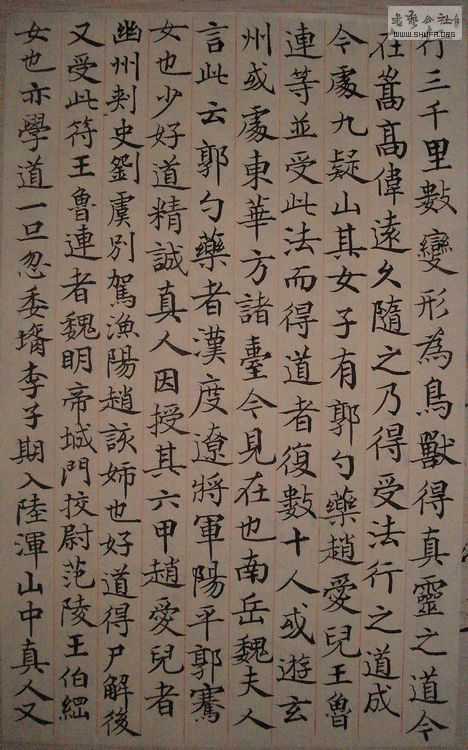 行三千里數變形為鳥獸得真靈之道今
在嵩高偉遠久隨之乃得受法行之道成
今處九疑山其女子有郭勺藥趙愛兒王魯
連等並受此法而得道者復數十人或遊玄
州或處東華方諸臺今見在也南岳魏夫人
言此云郭勺藥者漢度遼將軍陽平郭騫
女也少好道精誠真人因授其六甲趙愛兒者
幽州刾史劉虞別駕漁陽趙該姉也好道得尸解後
又受此符王魯連者魏明帝城門挍尉范陵王伯綱
女也亦學道一旦忽委壻李子期入陸渾山中真人又
書藝公社
WWW.SHUFA.ORG